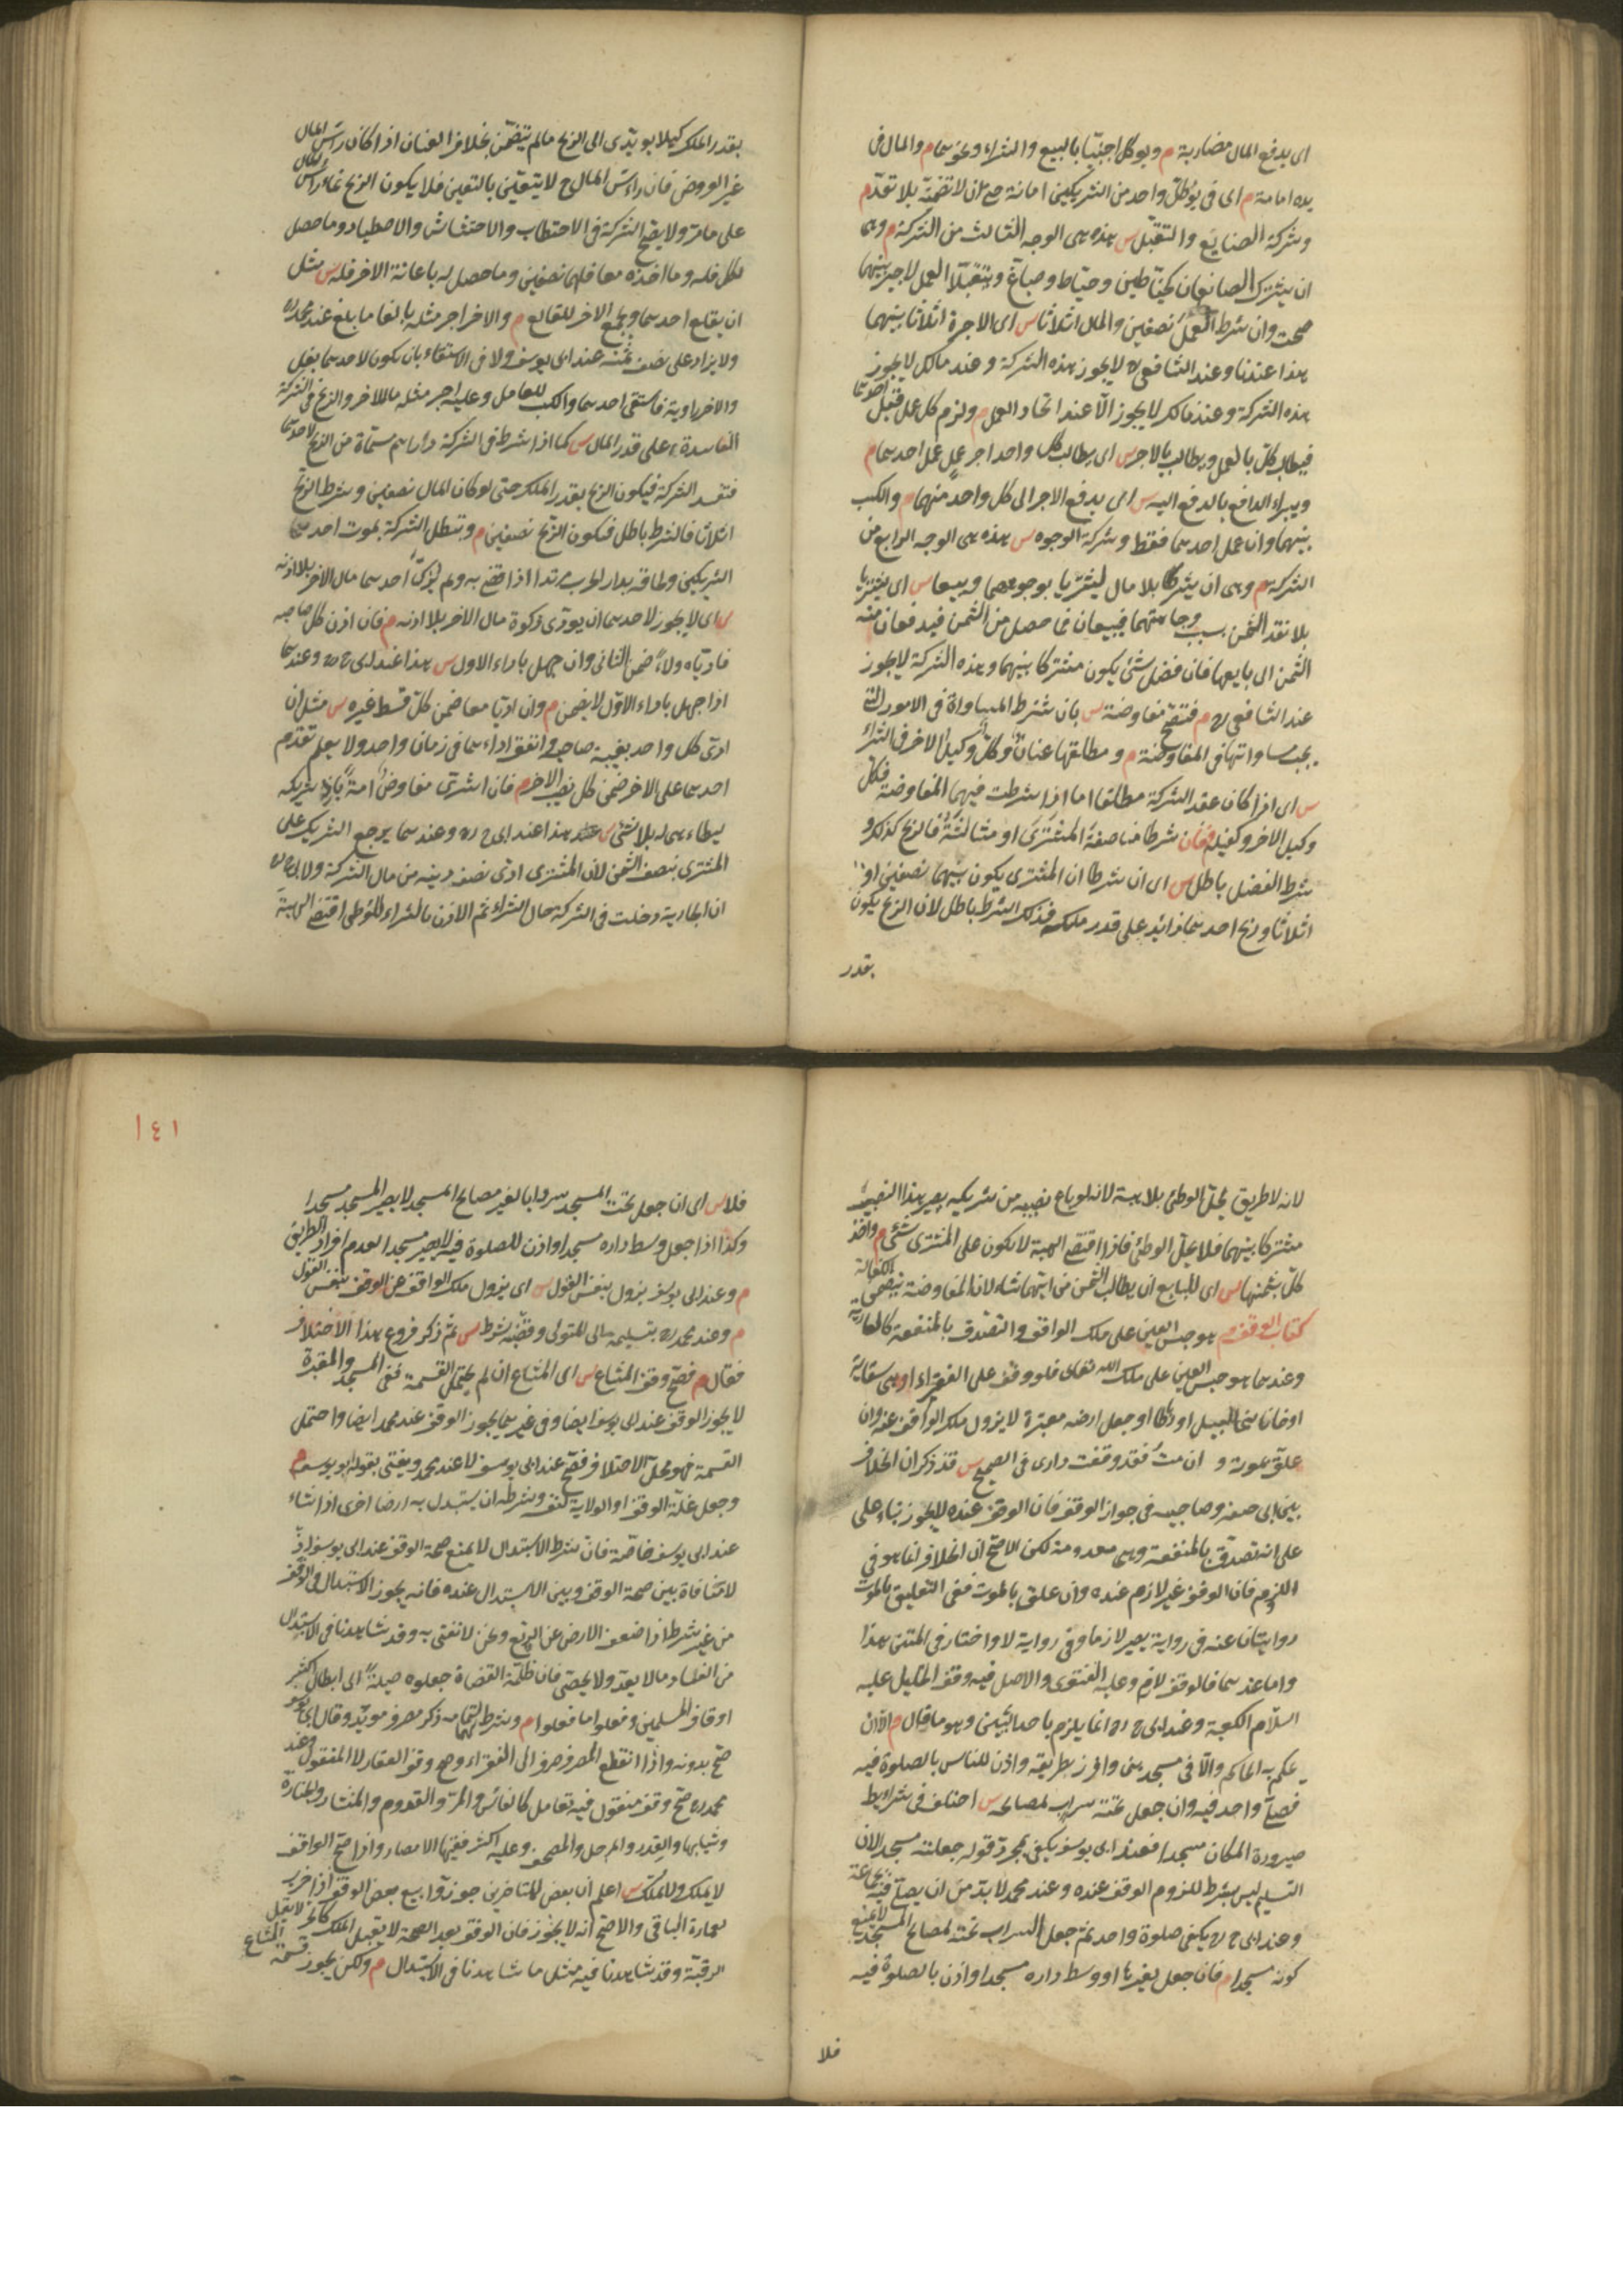 اى يدفع المال مضاربة م ويوكل اجنبيا بالبيع والشراء ونحوهما م والمال فى
يده امانة م اى فى يد كل واحد من الشريكين امانة حتى ان لا تضمنه بلا تعد م
وشركة الصنايع والتقبل س هذه هى الوجه الثالث من الشركة م وهى
ان يشترك الصانعان كخياطين وخياط وصباغ ويتقبلا العمل لاجر بينهما
صحت وان شرط العمل نصفين والمال اثلاثا س اى الاجرة اثلاثا بينهما
هذا عندنا وعند الشافعى ره لا يجوز هذه الشركة وعند مالك لا يجوز
هذه الشركة وعند مالك لا يجوز الا عند اتحاد العمل م ولزم كل عمل قبل احدهما
فيطالب كل بالعمل ويطالب بالاجر س اى يطالب كل واحد اجر عمل عمل احدهما م
ويبراء الدافع بالدفع اليه س اى يدفع الاجر الى كل واحد منهما م والكسب
بينهما وان عمل احدهما فقط وشركة الوجوه س هذه هى الوجه الرابع من
الشركة م وهى ان يشتركا بلا مال ليشتريا بوجوههما ويبيعا س اى يشتريا
بلا نقد الثمن بسبب وجاهتهما فيبيعان فما حصل من الثمن فيدفعان منه
الثمن الى بايعها فان فضل شئ يكون مشتركا بينهما وهذه الشركة لا يجوز
عند الشافعى ره م فتصح مفاوضة س بان شرط المساواة فى الامور التى
يجب مساواتها فى المفاوضة م ومطلقها عنان وكل وكيل الاخر فى الشراء
س اى اذا كان عقد الشركة مطلقا اما اذا شرطت فيهما المفاوضة فكل
وكيل الاخر وكفيله م فان شرطا مناصفة المشترى او مثالثته فالربح كذلك و
شرط الفضل باطل س اى ان شرطا ان المشترى يكون بينهما نصفين او
اثلاثا وربح احدهما زائد على قدر ملكه فذلك الشرط باطل لان الربح يكون
بقدر
بقدر الملك كيلا يودى الى الربح مالم يتضمن بخلاف العنان اذا كان راس المال
غير العروض فان راس المال ح لا يتعين بالتعيين فلا يكون الربح نماء راس المال
على ما مر ولا يصح الشركة فى الاحتطاب والاحتشاش والاصطياد وما حصل
لكل فله وما اخذه معا فلهما نصفين وما حصل له باعانة الاخر فله س مثل
ان يقلع احدهما ويجمع الاخر للقالع م والاخر اجر مثله بالغا ما بلغ عند محمد ره
ولا يزاد على نصف ثمنه عند ابى يوسف ولا فى الاستقاء بان يكون لاحدهما بغل
والاخر راوية فاستقى احدهما والكسب للعامل وعليه اجر مثله ما للاخر والربح فى الشركة
الفاسدة على قدر المال س كما اذا شرط فى الشركة دراهم مسماة من الربح لاحدهما
فتفسد الشركة فيكون الربح بقدر الملك حتى لو كان المال نصفين وشرط الربح
اثلاثا فالشرط باطل فيكون الربح نصفين م وتبطل الشركة بموت احد
الشريكين ولحاقه بدار الحرب مرتدا اذا قضى به ولم يزك احدهما مال الاخر بلا اذنه
س اى لا يجوز لاحدهما ان يودى زكوة مال الاخر بلا اذنه م فان اذن كل صاحبه
فادياه ولاء ضمن الثانى وان جهل باداء الاول س هذا عند ابى ح ره وعندهما
اذا جهل باداء الاول لا يضمن م وان اديا معا ضمن كل قسط غيره س مثل ان
ادى كل واحد بغيبة صاحبه واتفق اداءهما فى زمان واحد ولا يعلم تقدم
احدهما على الاخر ضمن كل نصيب الاخر م فان اشترى مفاوض امة باذن شريكه
ليطاء هى له بلا شئ س هذا عند ابى ح ره وعندهما يرجع الشريك على
المشترى بنصف الثمن لان المشترى ادى نصف دينه من مال الشركة ولابى ح ره
ان الجارية دخلت فى الشركة حال الشراء ثم الاذن بالشراء للوطى اقتضى الهبة
لانه لا طريق لحل الوطئ بلا هبة لانه لو باع نصيبه من شريكه يصير هذا النصيب
مشتركا بينهما فلا يحل الوطئ فاذا اقتضى الهبة لا يكون على المشترى شئ م واخذ
كل بثمنها س اى للبايع ان يطالب الثمن من ايهما شاء لان المفاوضة تتضمن الكفالة
كتاب الوقف م هو حبس العين على ملك الواقف والتصدق بالمنفعة كالعارية
وعندهما هو حبس العين على ملك الله تعالى فلو وقف على الفقراء او بنى سقاية
او خانا لبنى السبيل او رباطا او جعل ارضه مقبرة لا يزول ملك الواقف عنه وان
علق بموته و ان مت فقد وقفت دارى فى الصحيح س قد ذكر ان الخلاف
بين ابى حنيفة وصاحبيه فى جواز الوقف فان الوقف عنده لا يجوز بناء على
على انه تصدق بالمنفعة وهى معدومة لكن الاصح ان الخلاف انما هو فى
اللزوم فان الوقف غير لازم عنده وان علق بالموت ففى التعليق بالموت
روايتان عنه فى رواية يصير لازما وفى رواية لا واختار فى المتن هذا
واما عندهما فالوقف لازم وعليه الفتوى والاصل فيه وقف الخليل عليه
السلام الكعبة وعند ابى ح ره انما يلزم باحد الشيئين وهو ما قال م الا ان
يحكم به الحاكم والا فى مسجد بنى وافرز بطريقه واذن للناس بالصلوة فيه
فصلى واحد فيه وان جعل تحته سرداب لمصالحه س اختلف فى شرايط
صيرورة المكان مسجدا فعند ابى يوسف يكفى بمجرد قوله جعلته مسجدا لان
التسليم ليس بشرط للزوم الوقف عنده وعند محمد لا بد من ان يصلى فيه بجماعة
وعند ابى ح ره يكفى صلوة واحد ثم جعل السراب تحته لمصالح المسجد لا يمنع
كونه مسجدا م فان جعل لغيرها او وسط داره مسجدا واذن بالصلوة فيه
فلا
١٤١
فلا س اى ان جعل تحت المسجد سردابا لغير مصالح المسجد لا يصير المسجد مسجدا
وكذا اذا جعل وسط داره مسجدا واذن للصلوة فيه لا يصير مسجدا لعدم افراز الطريق
م وعند ابى يوسف يزول بنفس القول س اى يزول ملك الواقف عن الوقف بنفس القول
م وعند محمد ره بتسليمه الى المتولى وقبضه شرط س ثم ذكر فروع هذا الاختلاف
فقال م فصح وقف المشاع س اى المشاع ان لم يحتمل القسمة ففى المسجد والمقبرة
لا يجوز الوقف عند ابى يوسف ايضا وفى غيرهما يجوز الوقف عند محمد ايضا وما احتمل
القسمة فهو محل الاختلاف فصح عند ابى يوسف لا عند محمد ويفتى بقول ابو يوسف م
وجعل غلة الوقف او الولاية لنفسه وشرط ان يستبدل به ارضا اخرى اذا شاء
عند ابى يوسف خاصة فان شرط الاستبدال لا يمنع صحة الوقف عند ابى يوسف اذ
لا منافاة بين صحة الوقف وبين الاستبدال عنده فانه يجوز الاستبدال فى الوقف
من غير شرط اذا ضعف الارض عن الريع ونحن لا نفتى به وقد شاهدنا فى الاستبدال
من الفساد ما لا يعد ولا يحصى فان ظلمة القضاة جعلوه حيلة الى ابطال اكثر
اوقاف المسلمين وفعلوا ما فعلوا م وشرط لتمامه ذكر مصرف مؤبد وقال ابى يوسف
صح بدونه واذا انقطع المصرف صرف الى الفقراء وصح وقف العقار لا المنقول وعند
محمد ره صح وقف منقول فيه تعامل كالفاس والمر والقدوم والمنشار والجنازة
وثيابها والقدر والمرجل والمصحف وعليه اكثر فقهاء الامصار واذا صح الواقف
لا يملك ولا يملك س اعلم ان بعض المتاخرين جوزوا بيع بعض الوقف اذا خرب
لعمارة الباقى والاصح انه لا يجوز فان الوقف بعد الصحة لا يقبل الملك كالحر لا يقبل
الرقية وقد شاهدنا فيه مثل ما شاهدنا فى الاستبدال م ولكن يجوز قسمة المشاع